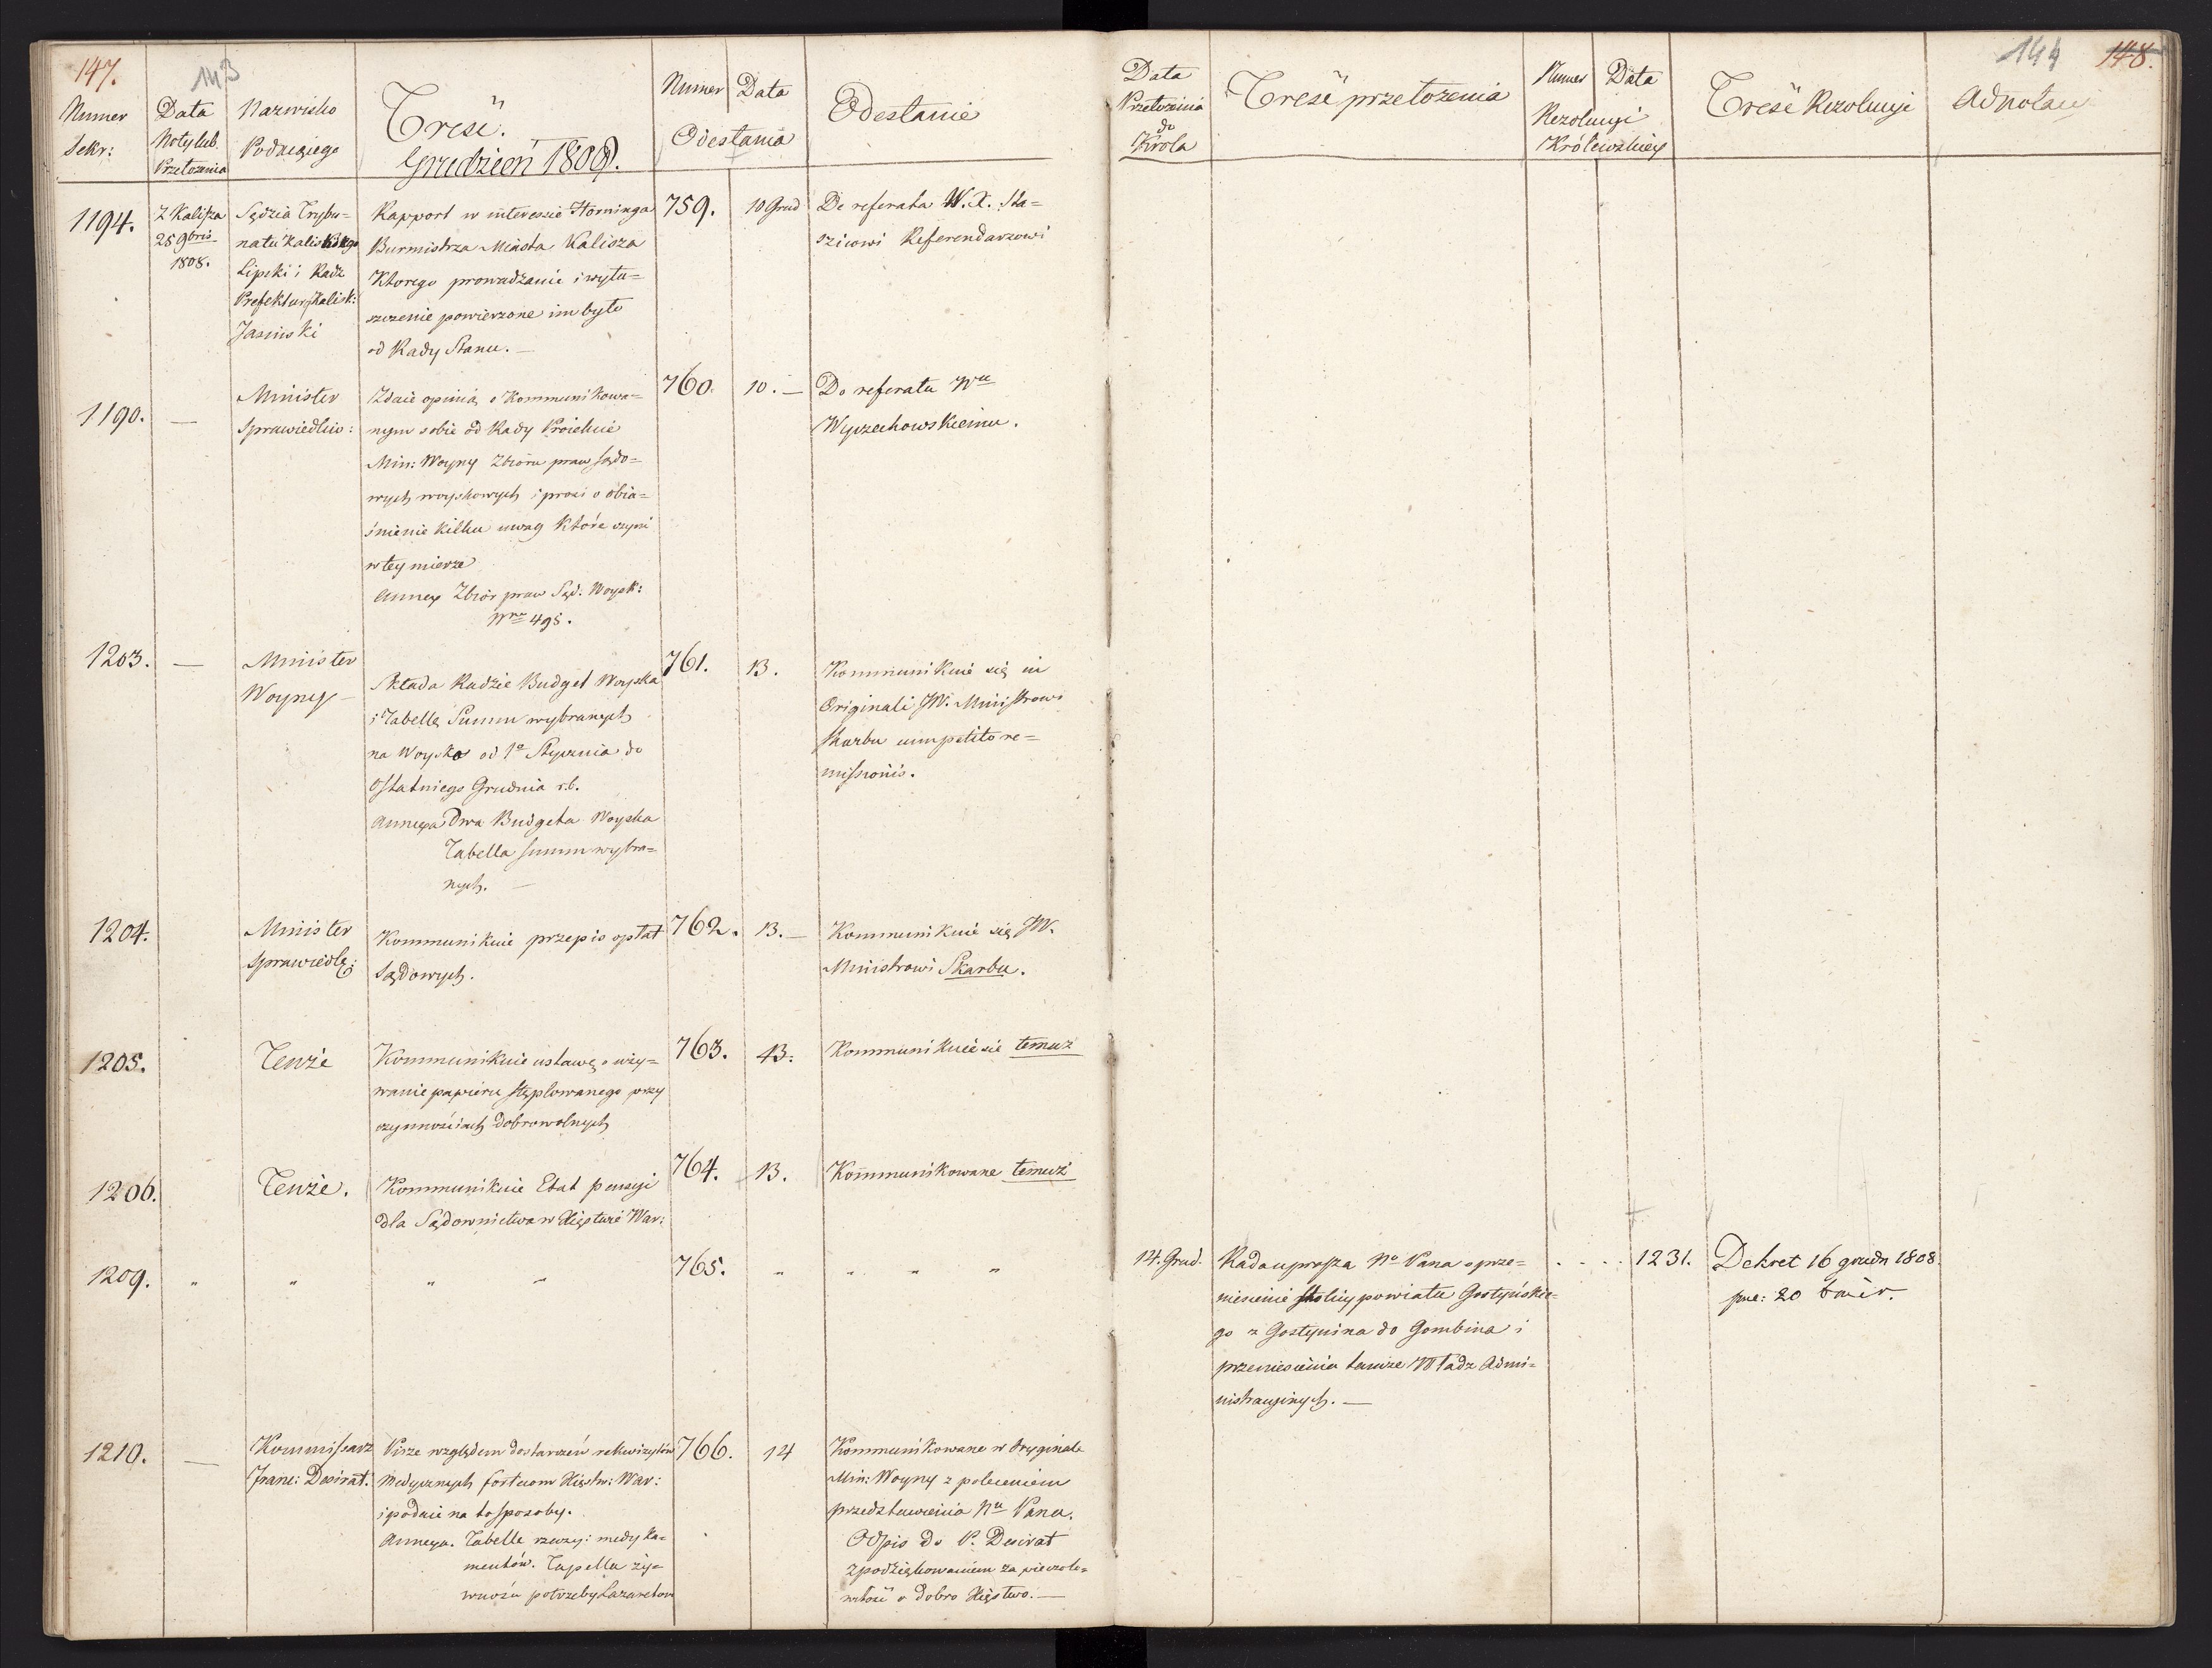 147.
143
Numer Sekr:
Data Noty lub Przełożenia
Nazwisko Podaiącego
Treść.
Grudzień 1808.
Numer Data
Odesłania
Odesłanie
1194.
Z Kalisza
28 9bris
1808.
Sędzia Trybu=
nału Kaliskiego
Lipski i Radz
Prefektury Kalisk:
Jasinski
Rapport w interessie Horninga
Burmistrza Miasta Kalisza
Ktorego prowadzanie i wytu=
szczenie powierzone im było
od Rady Stanu. —
759.
10 Grud
Do referatu W. X. Sta=
szicowi Referendarzowi
1190.
—
Minister
Sprawiedliw:
Zdaie opinią o Kommunikowa=
nym sobie od Rady Proiekcie
Min: Woyny Zbioru praw sądo=
wych woyskowych i prosi o obia=
śnienie kilku uwag które czyni
w tey mierze
Annex Zbiór praw Sąd. Woysk:
Nro 495.
760.
10. —
Do referatu Wu
Wyczechowskiemu.
1203.
—
Minister
Woyny —
Składa Radzie Budget Woyska
i Tabellę Summ wybranych
na Woysko od 1o Stycznia do
Ostatniego Grudnia r.b.
Annexa Dwa Budgeta Woyska
Tabella summ wybra=
nych. —
761.
13.
Kommunikuie się in
Originali JW. Ministrowi
Skarbu cum petito re=
missionis.
1204.
Minister
Sprawiedl:
Kommunikuie przepis opłat
Sądowych.
762.
13. —
Kommunikuie się JW.
Ministrowi Skarbu.
1205.
Tenże
Kommunikuie ustawę o uży=
wanie papieru stęplowanego przy
czynnościach dobrowolnych
763.
13.
Kommunikuie sie temuż
1206.
Tenże.
Kommunikuie Etat pensyi
dla Sądownictwa w Xięstwie War:
764.
13.
Kommunikowane temuż
1209.
" " " "
765.
" " " "
1210.
—
Kommissarz
Franc: Desirat.
Pisze względem dostarczeń rekwizytów
Medycznych fortecom Xięstw: War:
i podaie na to sposoby.
Annexa. Tabella rzeczy: medyka=
mentów. Tapella ży=
wności potrzeby Lazaretow
766.
14
Kommunikowane w Oryginale
Min: Woyny z poleceniem
przedstawienia Nu Panu.
Odpis do P. Desirat
z podziękowaniem za pieczoło=
witość o dobro Xięstwa. —
144 148.
Data Przełożenia do Krola
Treść przełożenia
Numer Data
Rezolucyi
Królewskiey
Treść Rezolucyi
Adnotac
14. Grud.
Rada uprasza No Pana o prze=
niesienie stolicy powiatu Gostyńskie=
go z Gostynina do Gombina i
przeniesienia tamże Władz Admi=
nistracyinych. —
. . . .
1231.
Dekret 16 grudn 1808.